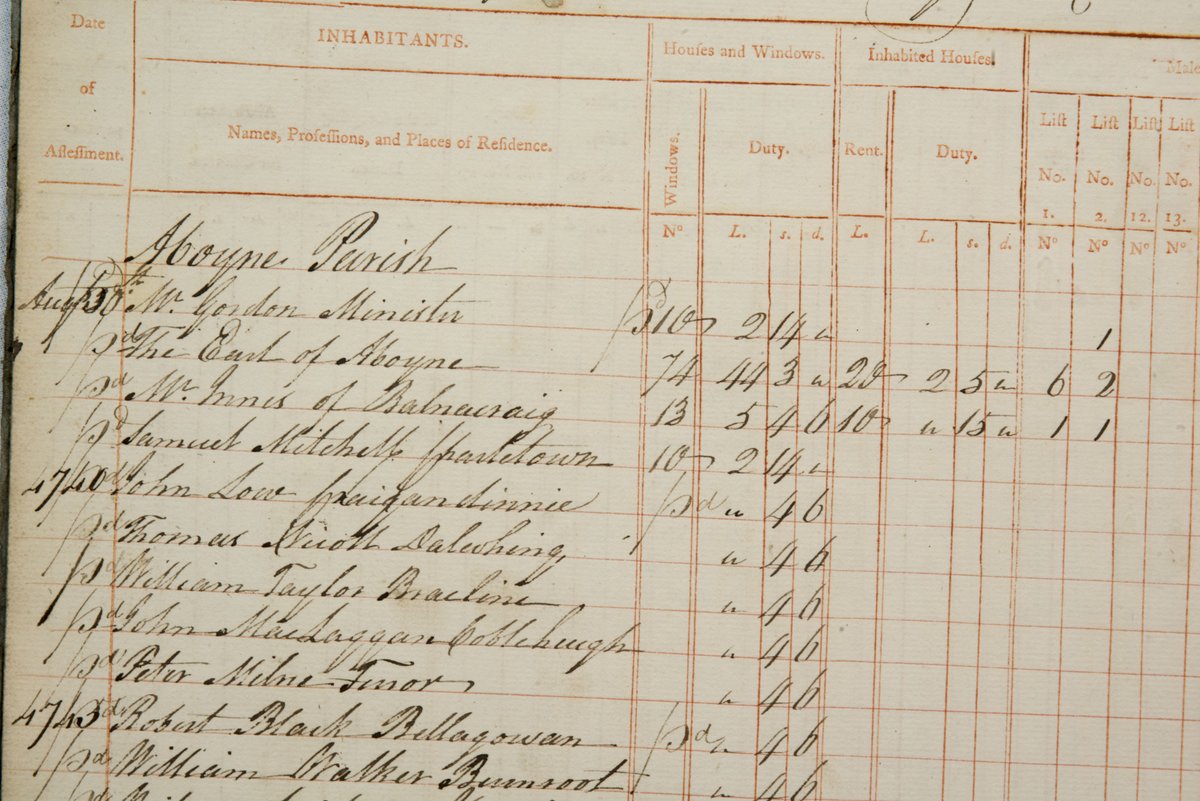 Date of Assessment.
INHABITANTS.
Names, Professions, and Places of Residence.
Houses and Windows.
Inhabited Houses.
Male
Windows.
Duty.
Rent.
Duty.
List No. 1.
List No. 2.
List No. 12.
List No. 13.
No L. s. d. L. L. s. d. No No No No
Aboyne Parish
Augt 30th Mr. Gordon Minister pd 10 2 14 " 1
pd The Earl of Aboyne 74 44 3 " 20 2 5 " 6 2
pd Mr. Innes of Balnacraig 13 5 4 6 10 " 15 " 1 1
pd Samuel Mitchell Charletown 10 2 14 "
4740 pd John Low Craigandinnie pd " 4 6
pd Thomas Nicoll Dalwhing " 4 6
pd William Taylor Braeline " 4 6
pd John MacLaggan Coblehaugh " 4 6
pd Peter Milne Tenor " 4 6
4743 pd Robert Black Bellagowan pd " 4 6
pd William Walker Burnroot " 4 6